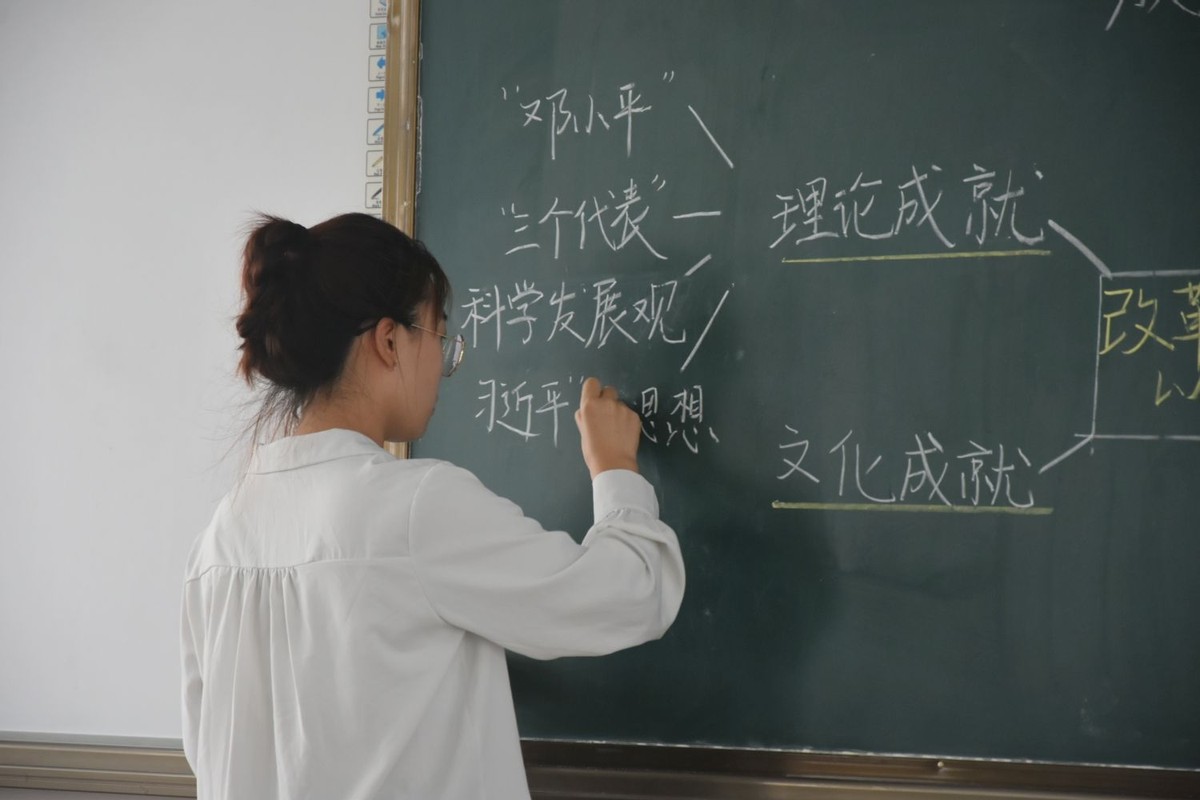 "邓小平"
"三个代表"
科学发展观
习近平" 思想
理论成就
文化成就
改革
以